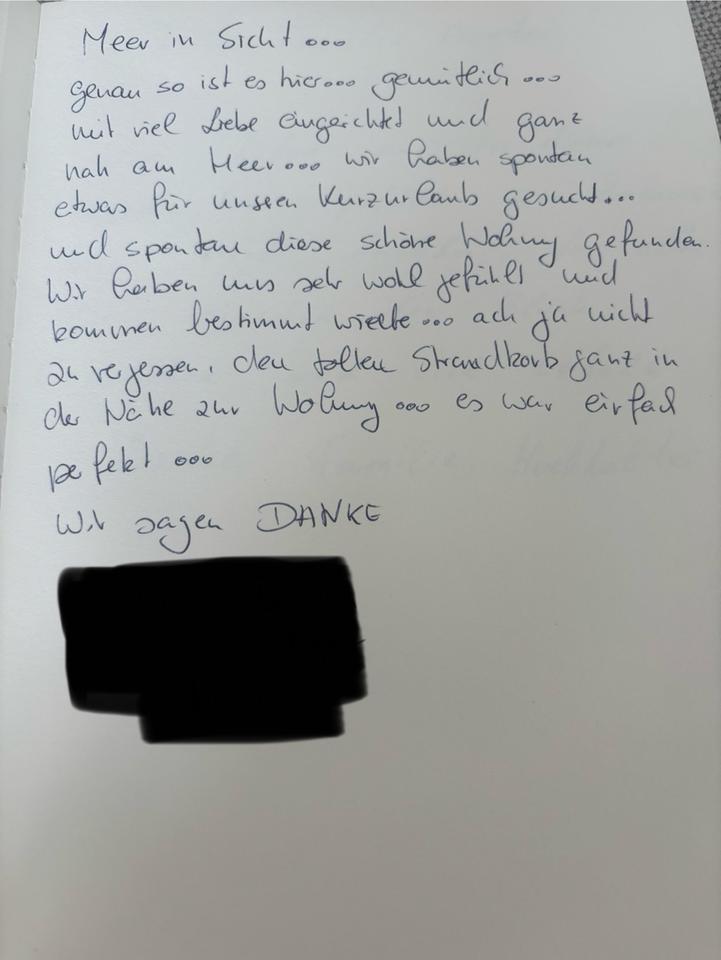 Meer in Sicht...
genau so ist es hier... gemütlich...
mit viel Liebe eingerichtet und ganz
nah am Meer... wir haben spontan
etwas für unseren Kurzurlaub gesucht...
und spontan diese schöne Wohnung gefunden.
Wir haben uns sehr wohl gefühlt und
kommen bestimmt wieder... ach ja nicht
zu vergessen, den tollen Strandkorb ganz in
der Nähe zur Wohnung... es war einfach
perfekt...
Wir sagen DANKE